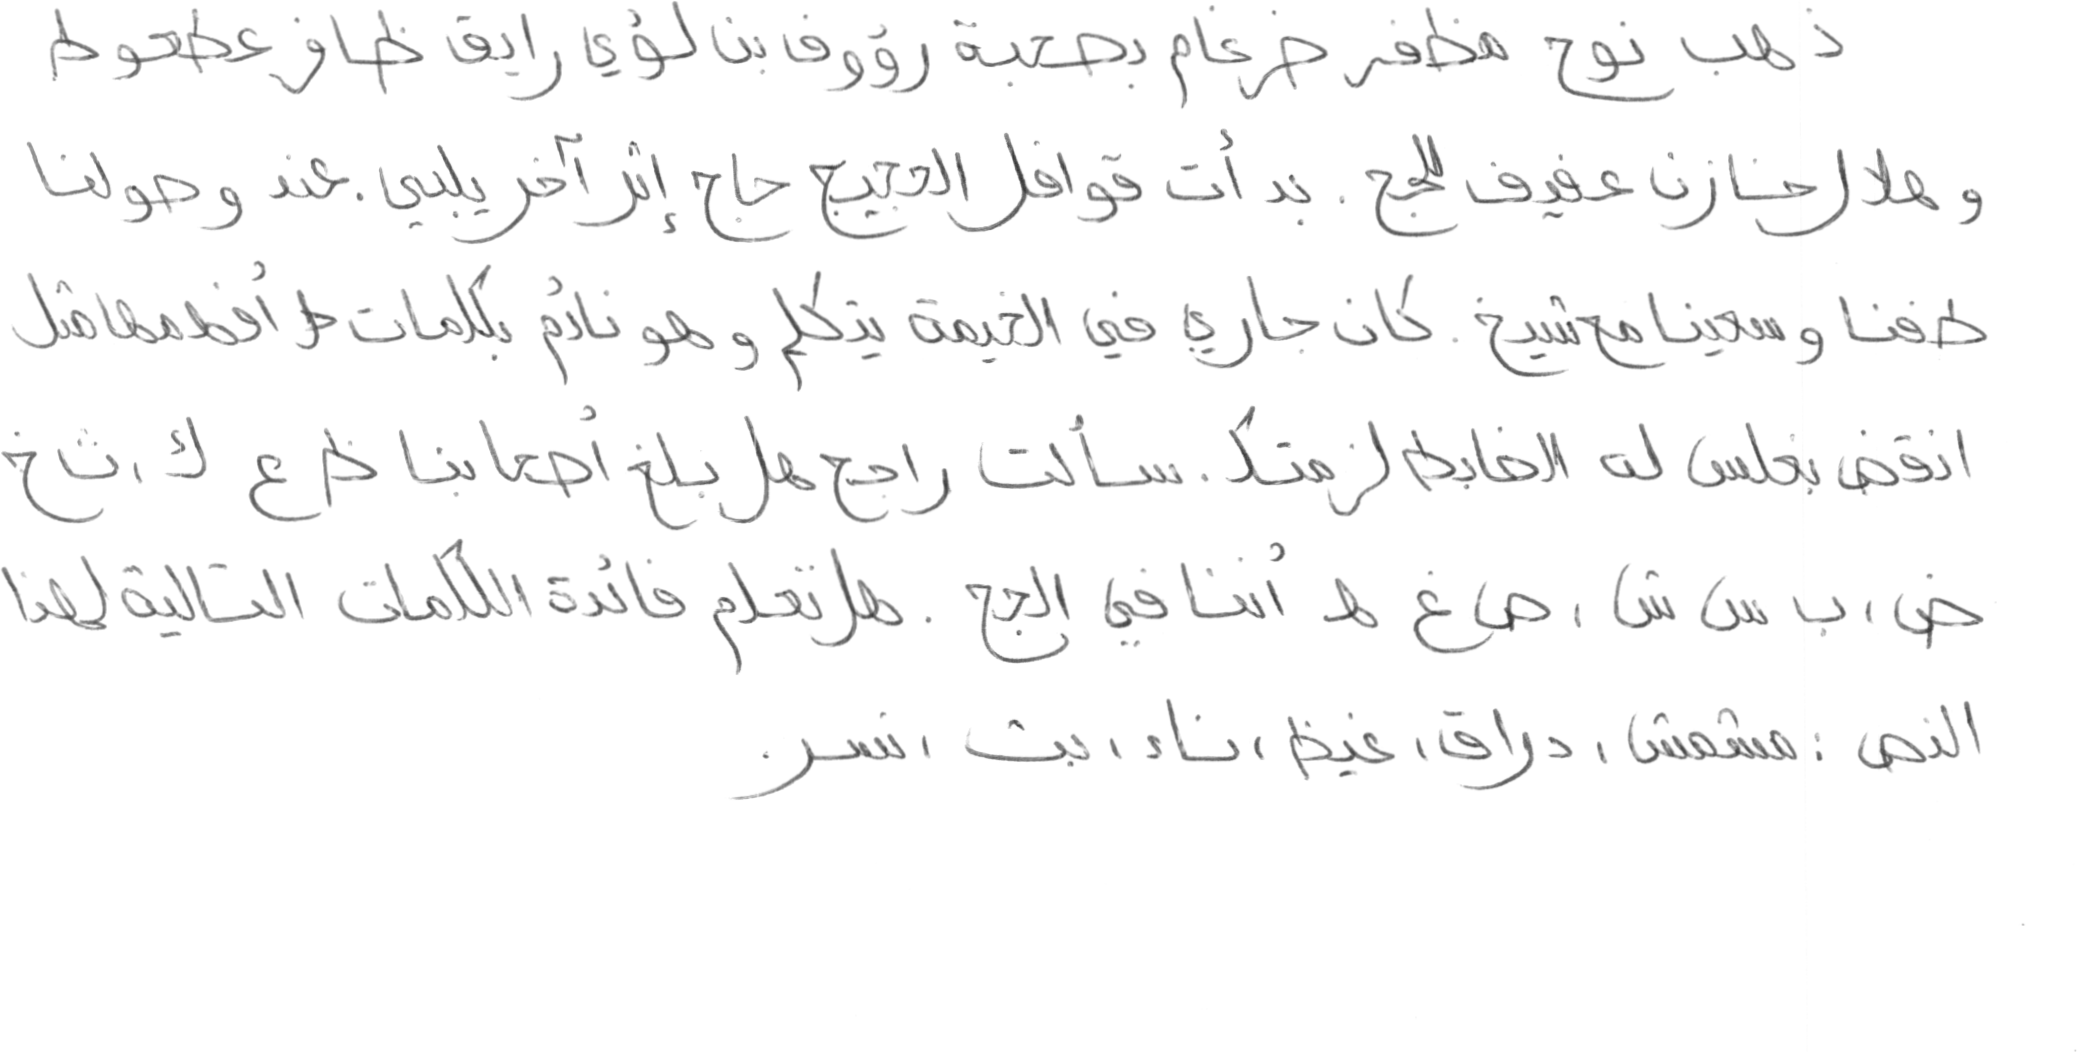 ذهب نوح مظفر ضرغام بصحبة رؤوف بن لؤي رايق ظافر عطعوط
وهلال خازن عفيف للحج . بدأت قوافل الحجيج حاج إثر آخر يلبي . عند وصولنا
طفنا وسعينا مع شيخ . كان جاري في الخيمة يتكلم وهو نائم بكلمات لم أفهمها مثل
انقض بغلس له الضابط لزمتك . سألت راجح هل بلغ أصحابنا ظ ع ك ، ث خ
ض ، ب س ش ، ص غ ه أننا في الحج . هل تعلم فائدة الكلمات التالية لهذا
النص : مشمش ، دراق ، غيظ ، ناء ، بث ، نسر .